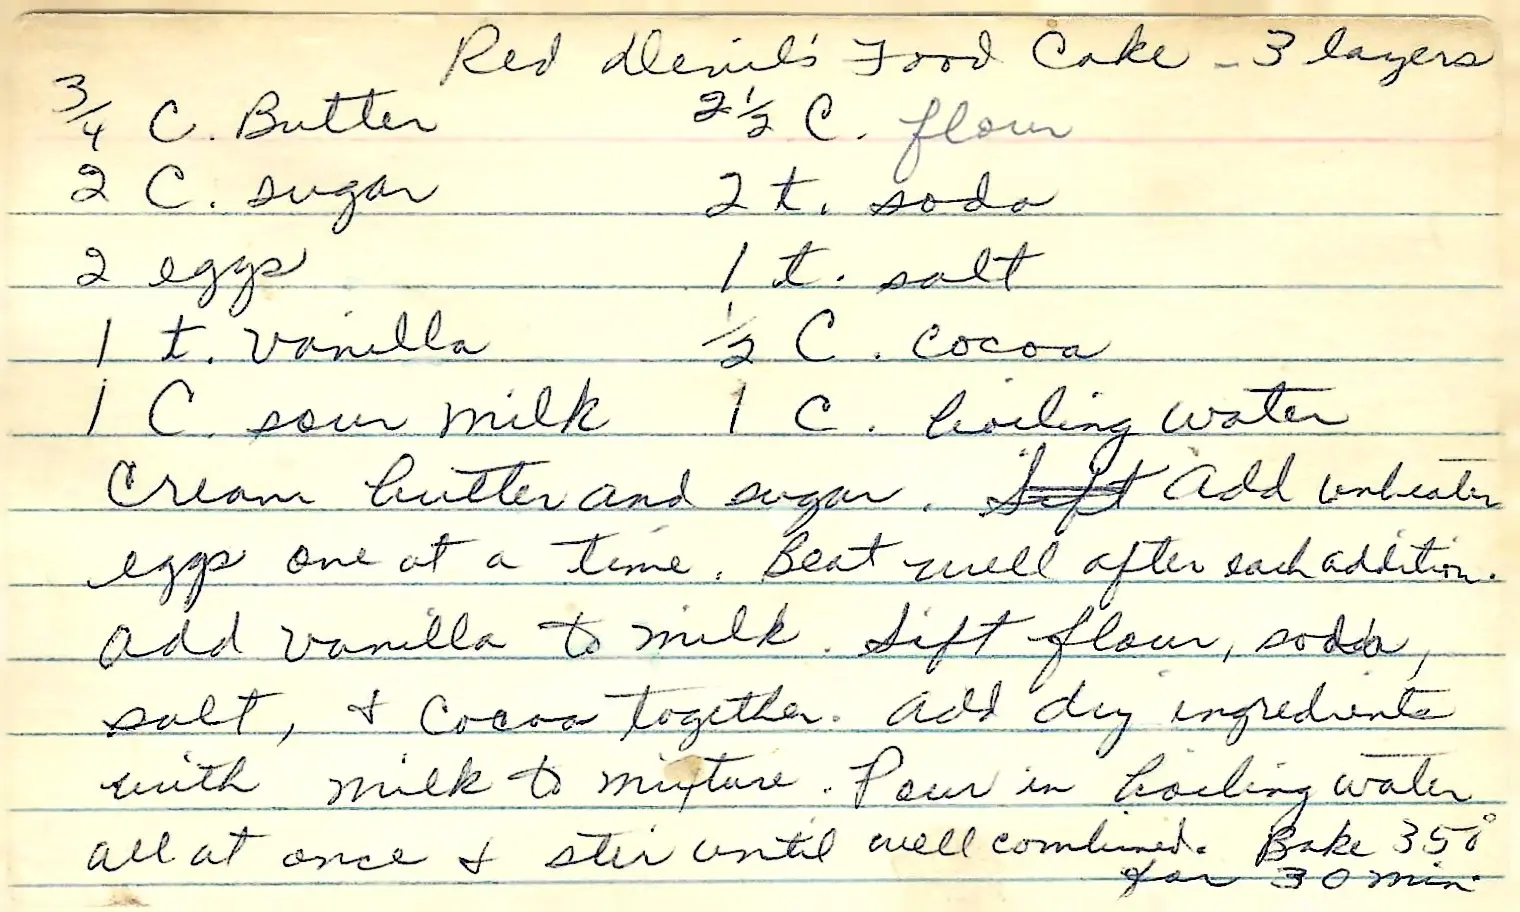 Red Devil's Food Cake - 3 layers
3/4 C. Butter 2 1/2 C. flour
2 C. sugar 2 t. soda
2 eggs 1 t. salt
1 t. vanilla 1/2 C. cocoa
1 C. sour milk 1 C. boiling water
Cream butter and sugar. Sift Add unbeaten
eggs one at a time. Beat well after each addition.
Add vanilla to milk. Sift flour, soda,
salt, & Cocoa together. Add dry ingredients
with milk to mixture. Pour in boiling water
all at once & stir until well combined. Bake 350°
for 30 min.